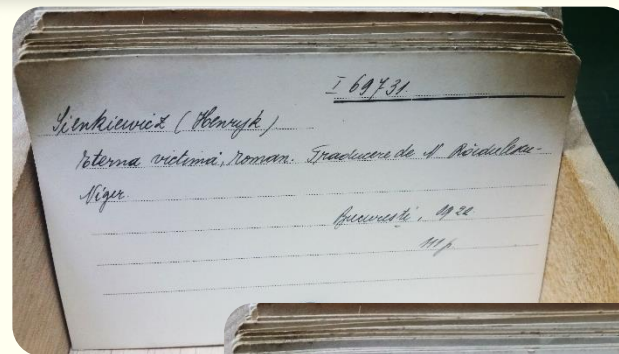 I 69731
Sienkiewicz (Henryk)
Eterna victimă, roman. Traducere de N. Rădulescu-
Niger.
București, 1922
111 p.